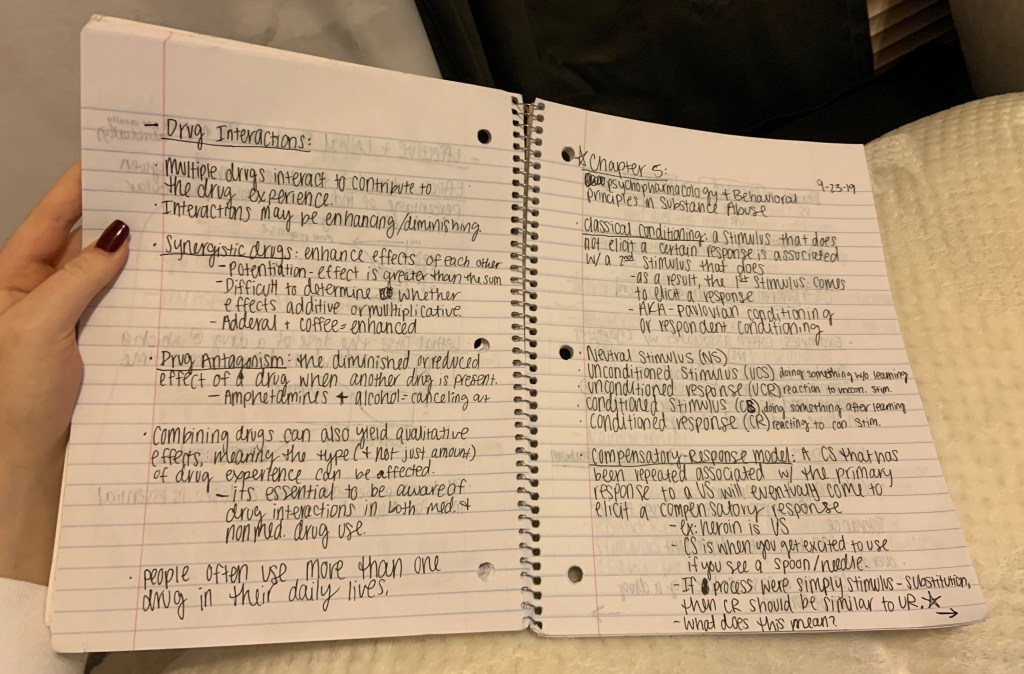 - Drug Interactions:
· Multiple drugs interact to contribute to
the drug experience.
· Interactions may be enhancing/diminishing
· Synergistic drugs: enhance effects of each other
- Potentiation - effect is greater than the sum
- Difficult to determine whether
effects additive or multiplicative
- Adderal + coffee = enhanced
· Drug Antagonism: the diminished or reduced
effect of a drug when another drug is present.
- Amphetamines + alcohol = canceling out
· Combining drugs can also yield qualitative
effects, meaning the type (+ not just amount)
of drug experience can be affected.
- its essential to be aware of
drug interactions in both med. +
nonmed. drug use.
· people often use more than one
drug in their daily lives.
☆ Chapter 5:
9-23-19
psychopharmacology + Behavioral
principles in Substance Abuse
· Classical conditioning: a stimulus that does
not elicit a certain response is associated
w/ a 2nd stimulus that does
- as a result, the 1st stimulus comes
to elicit a response
- AKA - pavlovian conditioning
or respondent conditioning
· Neutral Stimulus (NS)
· Unconditioned Stimulus (UCS) doing something w/o learning
· unconditioned response (UCR) reaction to uncon. stim.
· conditioned stimulus (CS) doing something after learning
· conditioned response (CR) reacting to con. stim.
· Compensatory-Response model: A CS that has
been repeated associated w/ the primary
response to a US will eventually come to
elicit a compensatory response
- ex: heroin is US
- CS is when you get excited to use
if you see a spoon/needle.
- If process were simply stimulus-substitution,
then CR should be similar to UR. ☆
- What does this mean? →